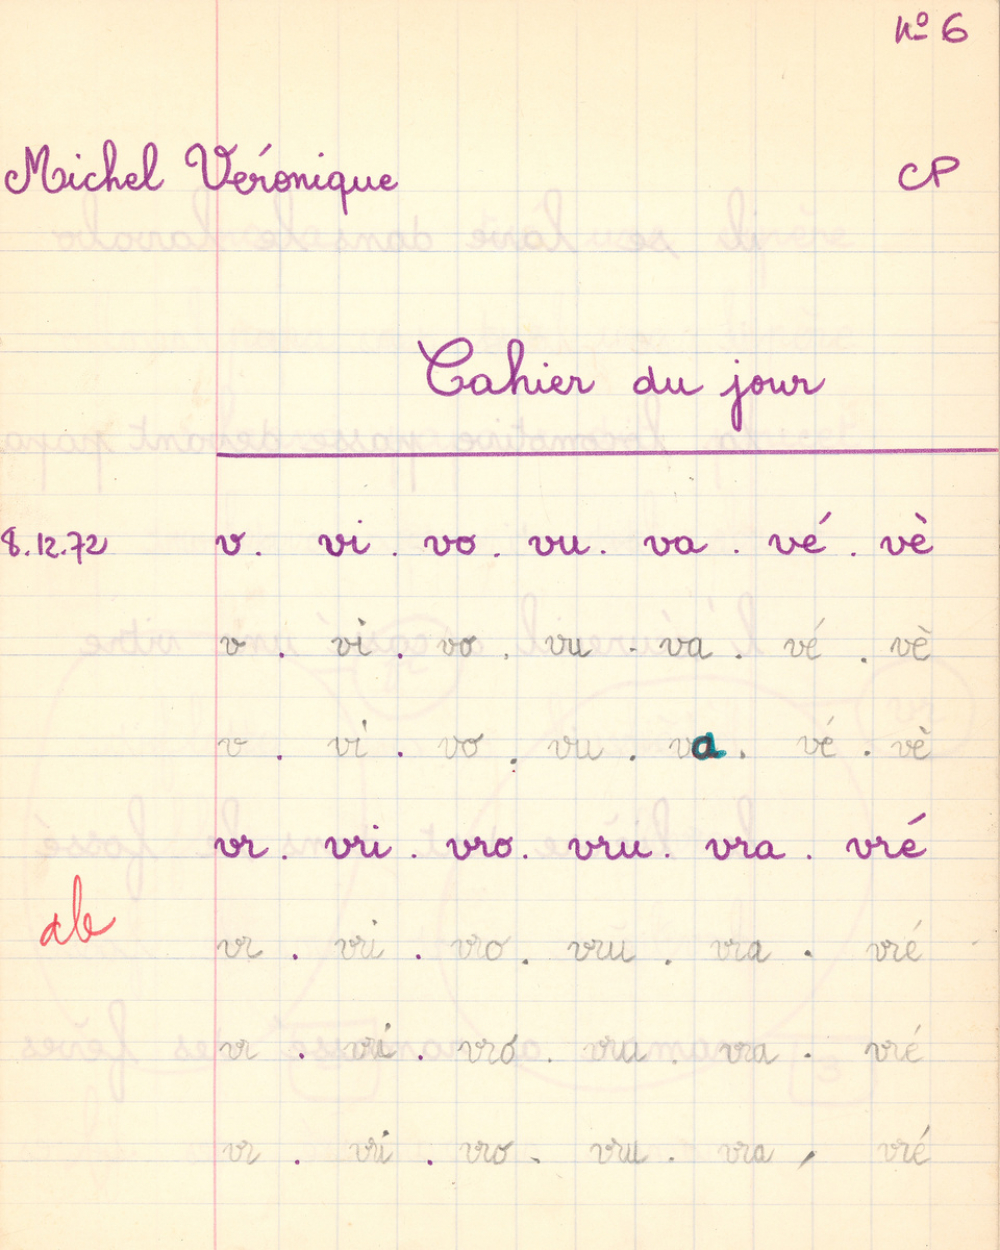 n° 6
Michel Véronique CP
Cahier du jour
8.12.72 v. vi . vo . vu . va . vé . vè
v . vi . vo . vu . va . vé . vè
v . vi . vo . vu . va . vé . vè
vr . vri . vro . vru . vra . vré
ab
vr . vri . vro . vru . vra . vré
vr . vri . vro . vru . vra . vré
vr . vri . vro . vru . vra , vré